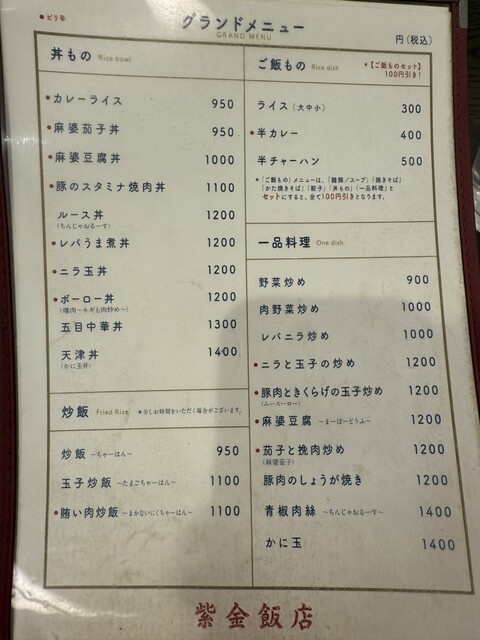 ●ピリ辛
グランドメニュー
GRAND MENU
円(税込)
丼もの Rice bowl
●カレーライス 950
●麻婆茄子丼 950
●麻婆豆腐丼 1000
●豚のスタミナ焼肉丼 1100
ルース丼 1200
(ちんじゃおるーす)
●レバうま煮丼 1200
●ニラ玉丼 1200
●ボーロー丼 1200
(爆肉〜ネギと肉炒め〜)
五目中華丼 1300
天津丼 1400
(かに玉丼)
炒飯 Fried Rice ●少しお時間をいただく場合がございます。
炒飯 〜ちゃーはん〜 950
玉子炒飯 〜たまごちゃーはん〜 1100
●賄い肉炒飯 〜まかないにくちゃーはん〜 1100
ご飯もの Rice dish
●【ご飯ものセット】
100円引き!
ライス(大中小) 300
●半カレー 400
半チャーハン 500
●「ご飯もの」メニューは、「麺類/スープ」「焼きそば」
「かた焼きそば」「餃子」「丼もの」「一品料理」と
セットにすると、全て100円引きとなります。
一品料理 One dish
野菜炒め 900
肉野菜炒め 1000
レバニラ炒め 1000
●ニラと玉子の炒め 1200
●豚肉ときくらげの玉子炒め 1200
(ムースーロー)
●麻婆豆腐 〜まーぼーどうふ〜 1200
●茄子と挽肉炒め 1200
(麻婆茄子)
豚肉のしょうが焼き 1200
青椒肉絲 〜ちんじゃおるーす〜 1400
かに玉 1400
紫金飯店